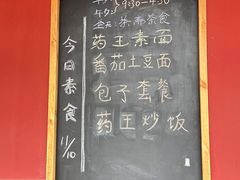 今日素食
11/10
9:30-4:30
全天:茶和茶食
药王素面
番茄土豆面
包子套餐
药王炒饭